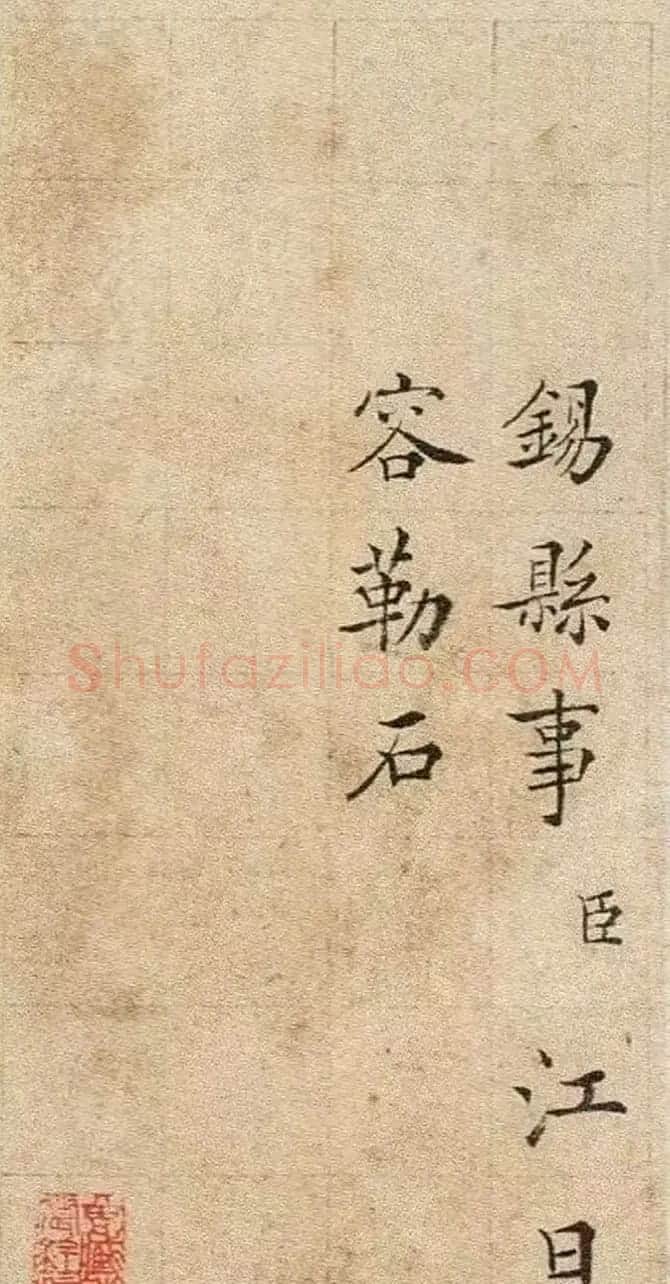 錫縣事臣江日
容勒石
Shufaziliao.COM